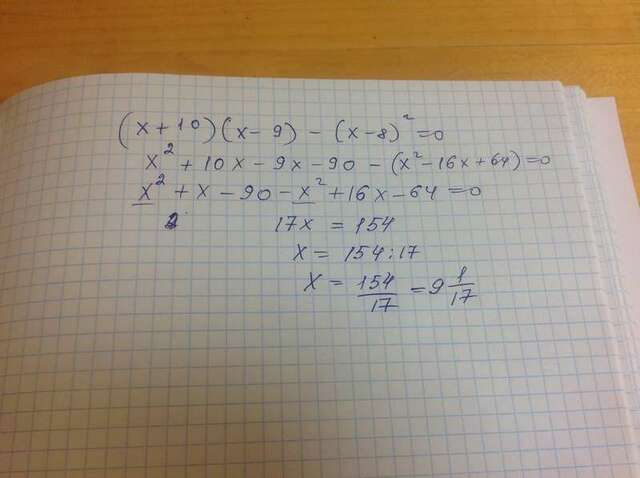 (x+10)(x-9)-(x-8)²=0
x²+10x-9x-90-(x²-16x+64)=0
x²+x-90-x²+16x-64=0
17x=154
x=154:17
x=154/17=9 1/17